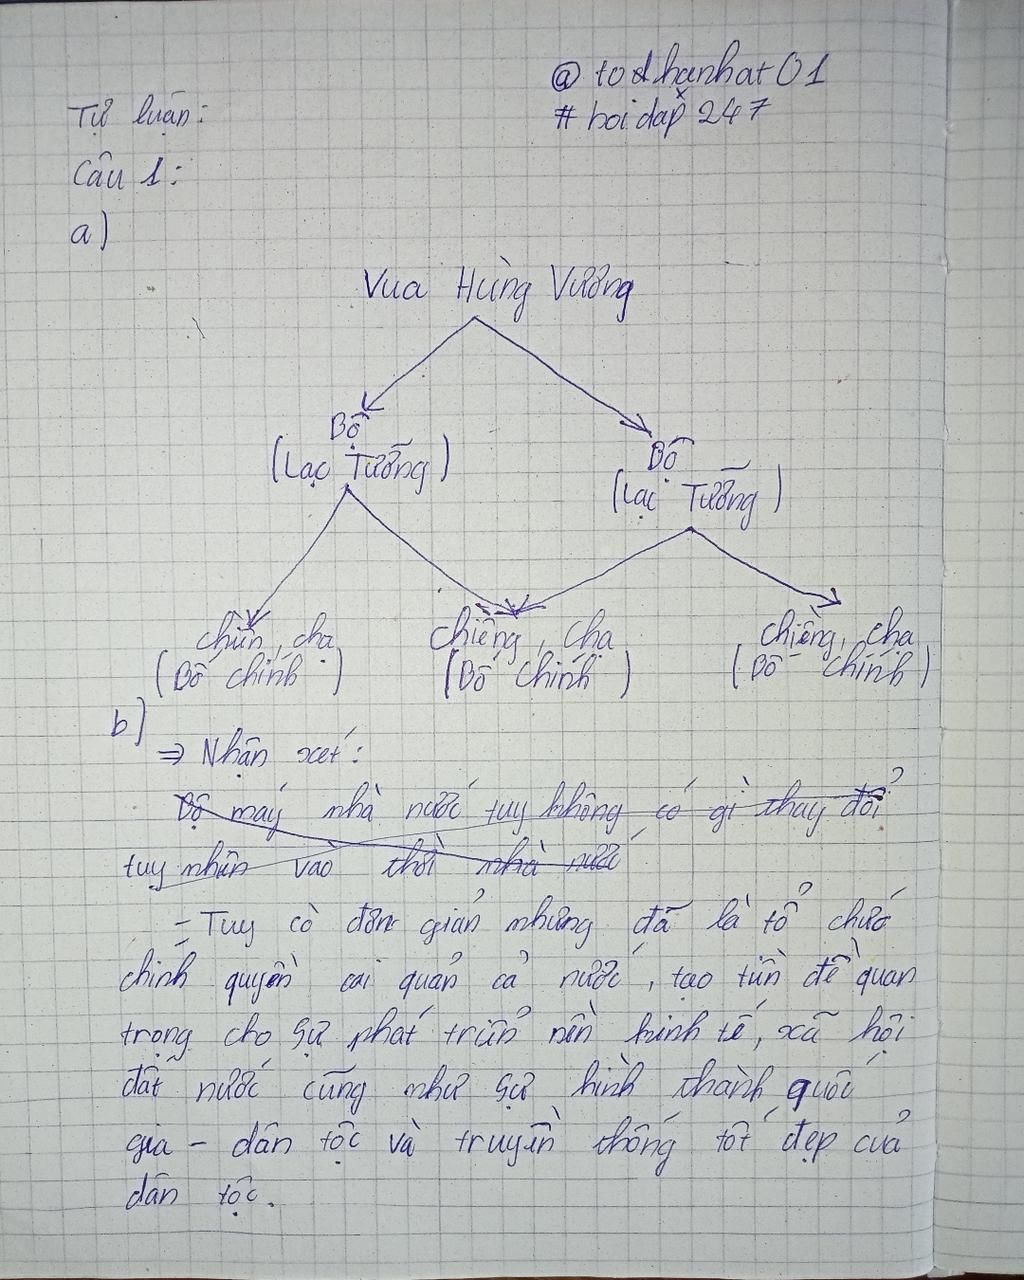 @ todhanhat01
# hoidap 247
Tự luận:
Câu 1:
a)
Vua Hùng Vương
Bộ
(Lạc Tướng)
Bộ
(Lạc Tướng)
chiền, chạ
(Bồ chính)
chiềng, chạ
(Bồ chính)
chiềng, chạ
(Bồ chính)
b)
⇒ Nhận xét:
Bộ máy nhà nước tuy không có gì thay đổi
tuy nhiên vào thời nhà nước
= Tuy còn đơn giản nhưng đã là tổ chức
chính quyền cai quản cả nước, tạo tiền đề quan
trọng cho sự phát triển nền kinh tế, xã hội
đất nước cũng như sự hình thành quốc
gia - dân tộc và truyền thống tốt đẹp của
dân tộc.